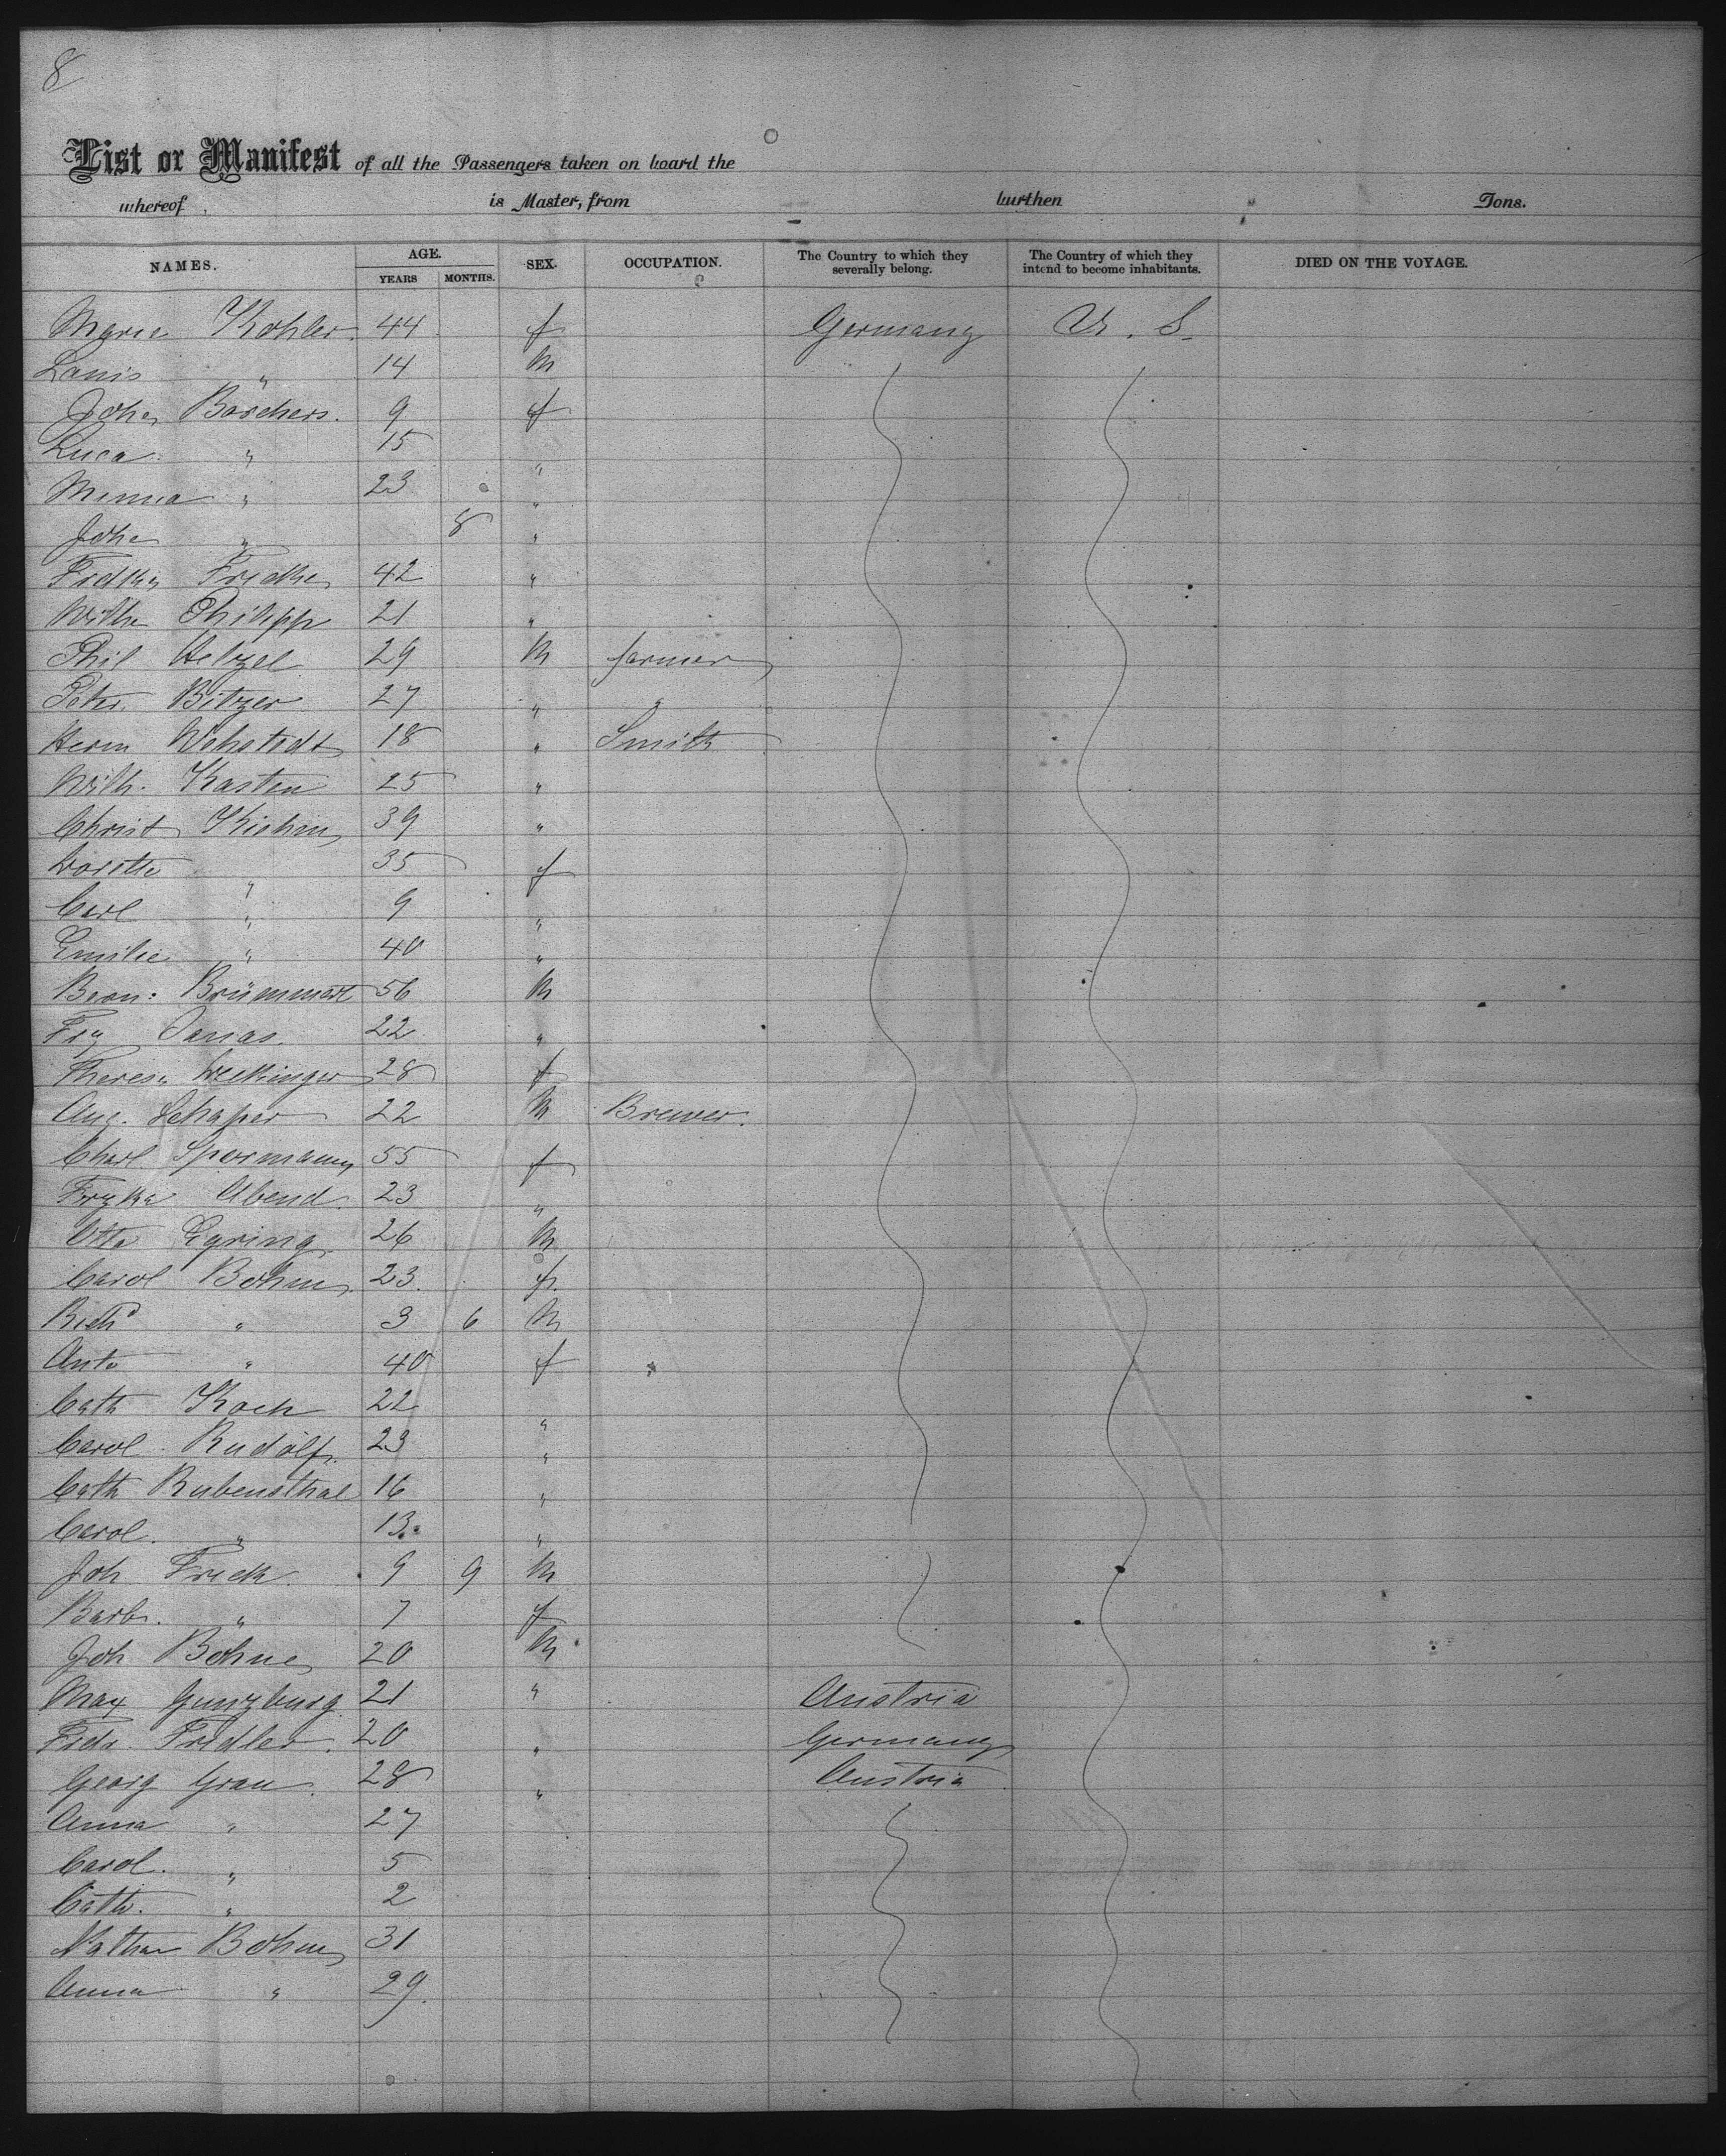 8
List or Manifest of all the Passengers taken on board the
whereof is Master, from burthen Tons.
NAMES. AGE. YEARS MONTHS. SEX. OCCUPATION. The Country to which they severally belong. The Country of which they intend to become inhabitants. DIED ON THE VOYAGE.
Marie Kohler 44 f Germany U. S.
Louis " 14 M
Johe Borchers. 9 f
Luca " 15 "
Minna " 23 "
Johe " 8 "
Fredke Fricke 42 "
Wilhe Philipp 21 "
Phil Helzel 29 M farmer
Peter Bitzer 27 " "
Herm Wehstedt 18 " Smith
Wilh. Kasten 25 "
Christ Kiehm 39 "
Dorette " 35 f
Carl " 9 "
Emilie " 40 "
Bern: Brümmert 56 M
Frz 22 "
Therese 28 f
Aug. Schaper 22 M Brewer.
Charl Spermann 55 f
Frzka Abend 23 "
Otto Egring 26 M
Carol Bohm 23. f.
Richd " 3 6 M
Anto " 40 f
Cath Koch 22 "
Carol Rudolf 23 "
Cath Rubensthal 16 "
Carol. " 13 "
Joh Frick 9 9 M
Barb. " 7 f
Joh Bohne 20 M
Max Gunzburg 21 " Austria
Frdr. Fridler. 20 " Germany
Georg Grau. 28 " Austria
Anna " 27
Carol. " 5
Cath. " 2
Nathan Bohm 31
Anna " 29.